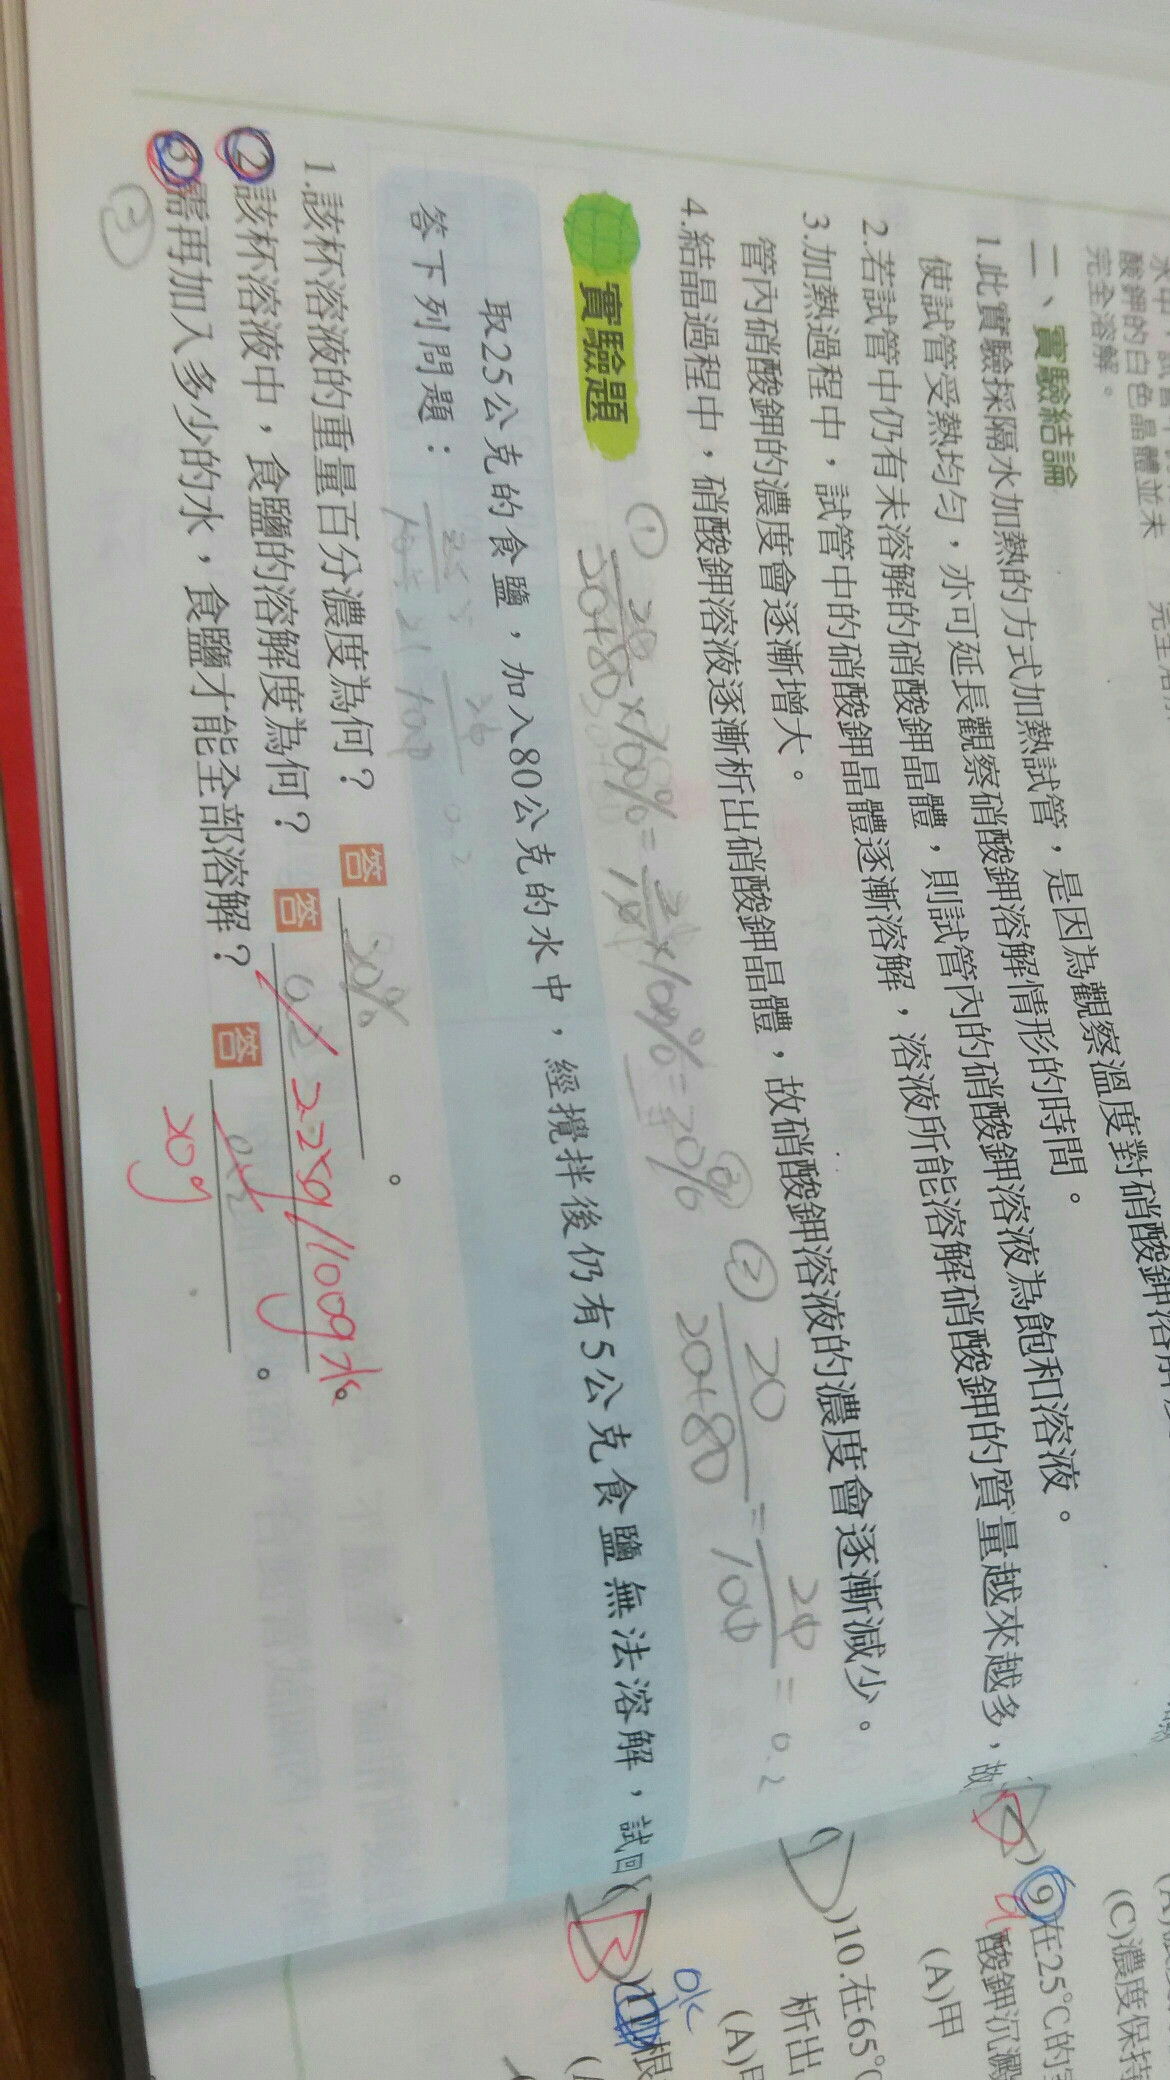 酸鉀的白色晶體並未
完全溶解。
二、實驗結論
1.此實驗採隔水加熱的方式加熱試管，是因為觀察溫度對硝酸鉀溶解度
使試管受熱均勻，亦可延長觀察硝酸鉀溶解情形的時間。
2.若試管中仍有未溶解的硝酸鉀晶體，則試管內的硝酸鉀溶液為飽和溶液。
3.加熱過程中，試管中的硝酸鉀晶體逐漸溶解，溶液所能溶解硝酸鉀的質量越來越多，故
管內硝酸鉀的濃度會逐漸增大。
4.結晶過程中，硝酸鉀溶液逐漸析出硝酸鉀晶體，故硝酸鉀溶液的濃度會逐漸減少。
實驗題
① 20/20+80 ×100% = ×100% = 20%
② 20/20+80 = 20/100 = 0.2
取25公克的食鹽，加入80公克的水中，經攪拌後仍有5公克食鹽無法溶解，試回
答下列問題：
1.該杯溶液的重量百分濃度為何？ 答 20% 。
2.該杯溶液中，食鹽的溶解度為何？ 答 0.2 25g/100g水。
3.需再加入多少的水，食鹽才能全部溶解？ 答 。
20g
③
(C)濃度保持
9.在25°C的
酸鉀沉澱
(A)甲
)10.在65°C
析出
(A)
ok
B )11.根